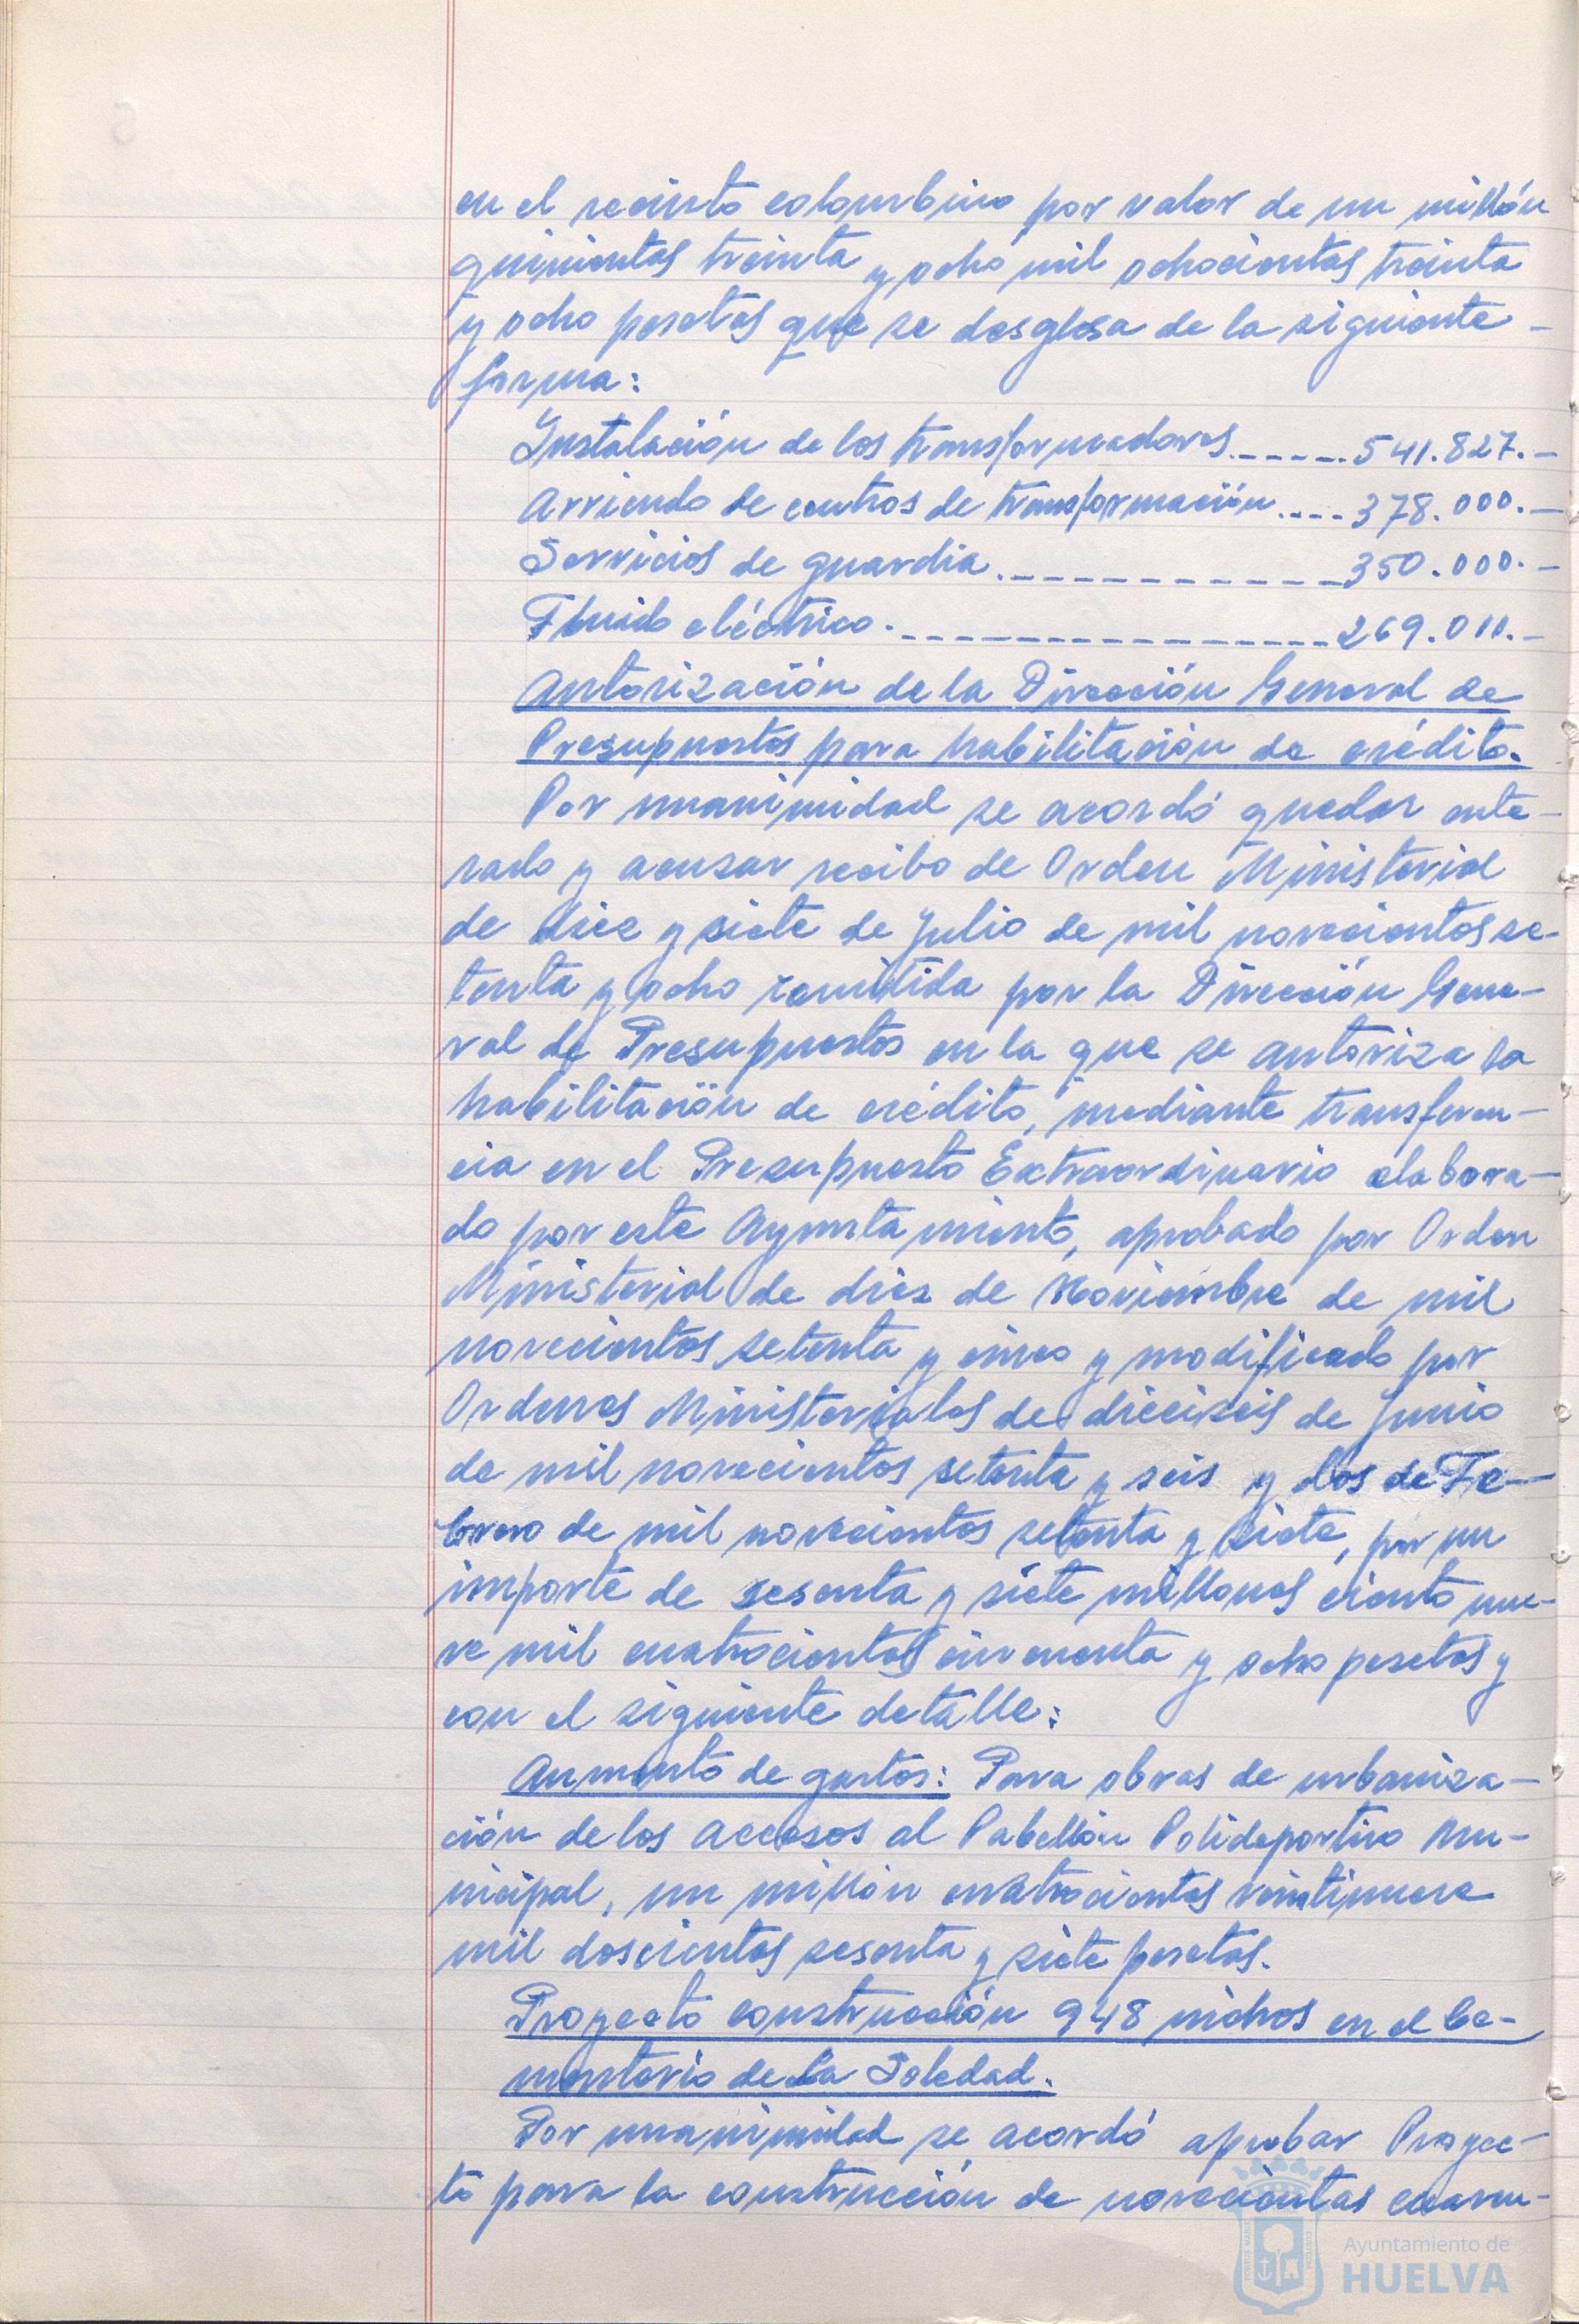 en el recinto colombino por valor de un millón
quinientas treinta y ocho mil ochocientas treinta
y ocho pesetas que se desglosa de la siguiente -
forma:
Instalación de los transformadores.-----541.827.-
Arriendo de centros de transformación....378.000.-
Servicios de guardia.------------350.000.-
Fluido eléctrico.----------------269.011.-
Autorización de la Dirección General de
Presupuestos para habilitación de crédito.
Por unanimidad se acordó quedar ente-
rado y acusar recibo de Orden Ministerial
de diez y siete de Julio de mil novecientos se-
tenta y ocho remitida por la Dirección Gene-
ral de Presupuestos en la que se autoriza la
habilitación de crédito, mediante transferen-
cia en el Presupuesto Extraordinario elabora-
do por este Ayuntamiento, aprobado por Orden
Ministerial de diez de Noviembre de mil
novecientos setenta y cinco y modificado por
Ordenes Ministeriales de dieciseis de Junio
de mil novecientos setenta y seis y dos de Fe-
brero de mil novecientos setenta y siete, por un
importe de sesenta y siete millones ciento nue-
ve mil cuatrocientas cincuenta y ocho pesetas y
con el siguiente detalle:
Aumento de gastos: Para obras de urbaniza-
ción de los accesos al Pabellón Polideportivo Mu-
nicipal, un millón cuatrocientas veintinueve
mil doscientas sesenta y siete pesetas.
Proyecto construcción 948 nichos en el Ce-
menterio de la Soledad.
Por unanimidad se acordó aprobar Proyec-
to para la construcción de novecientas cuaren-
Ayuntamiento de
HUELVA